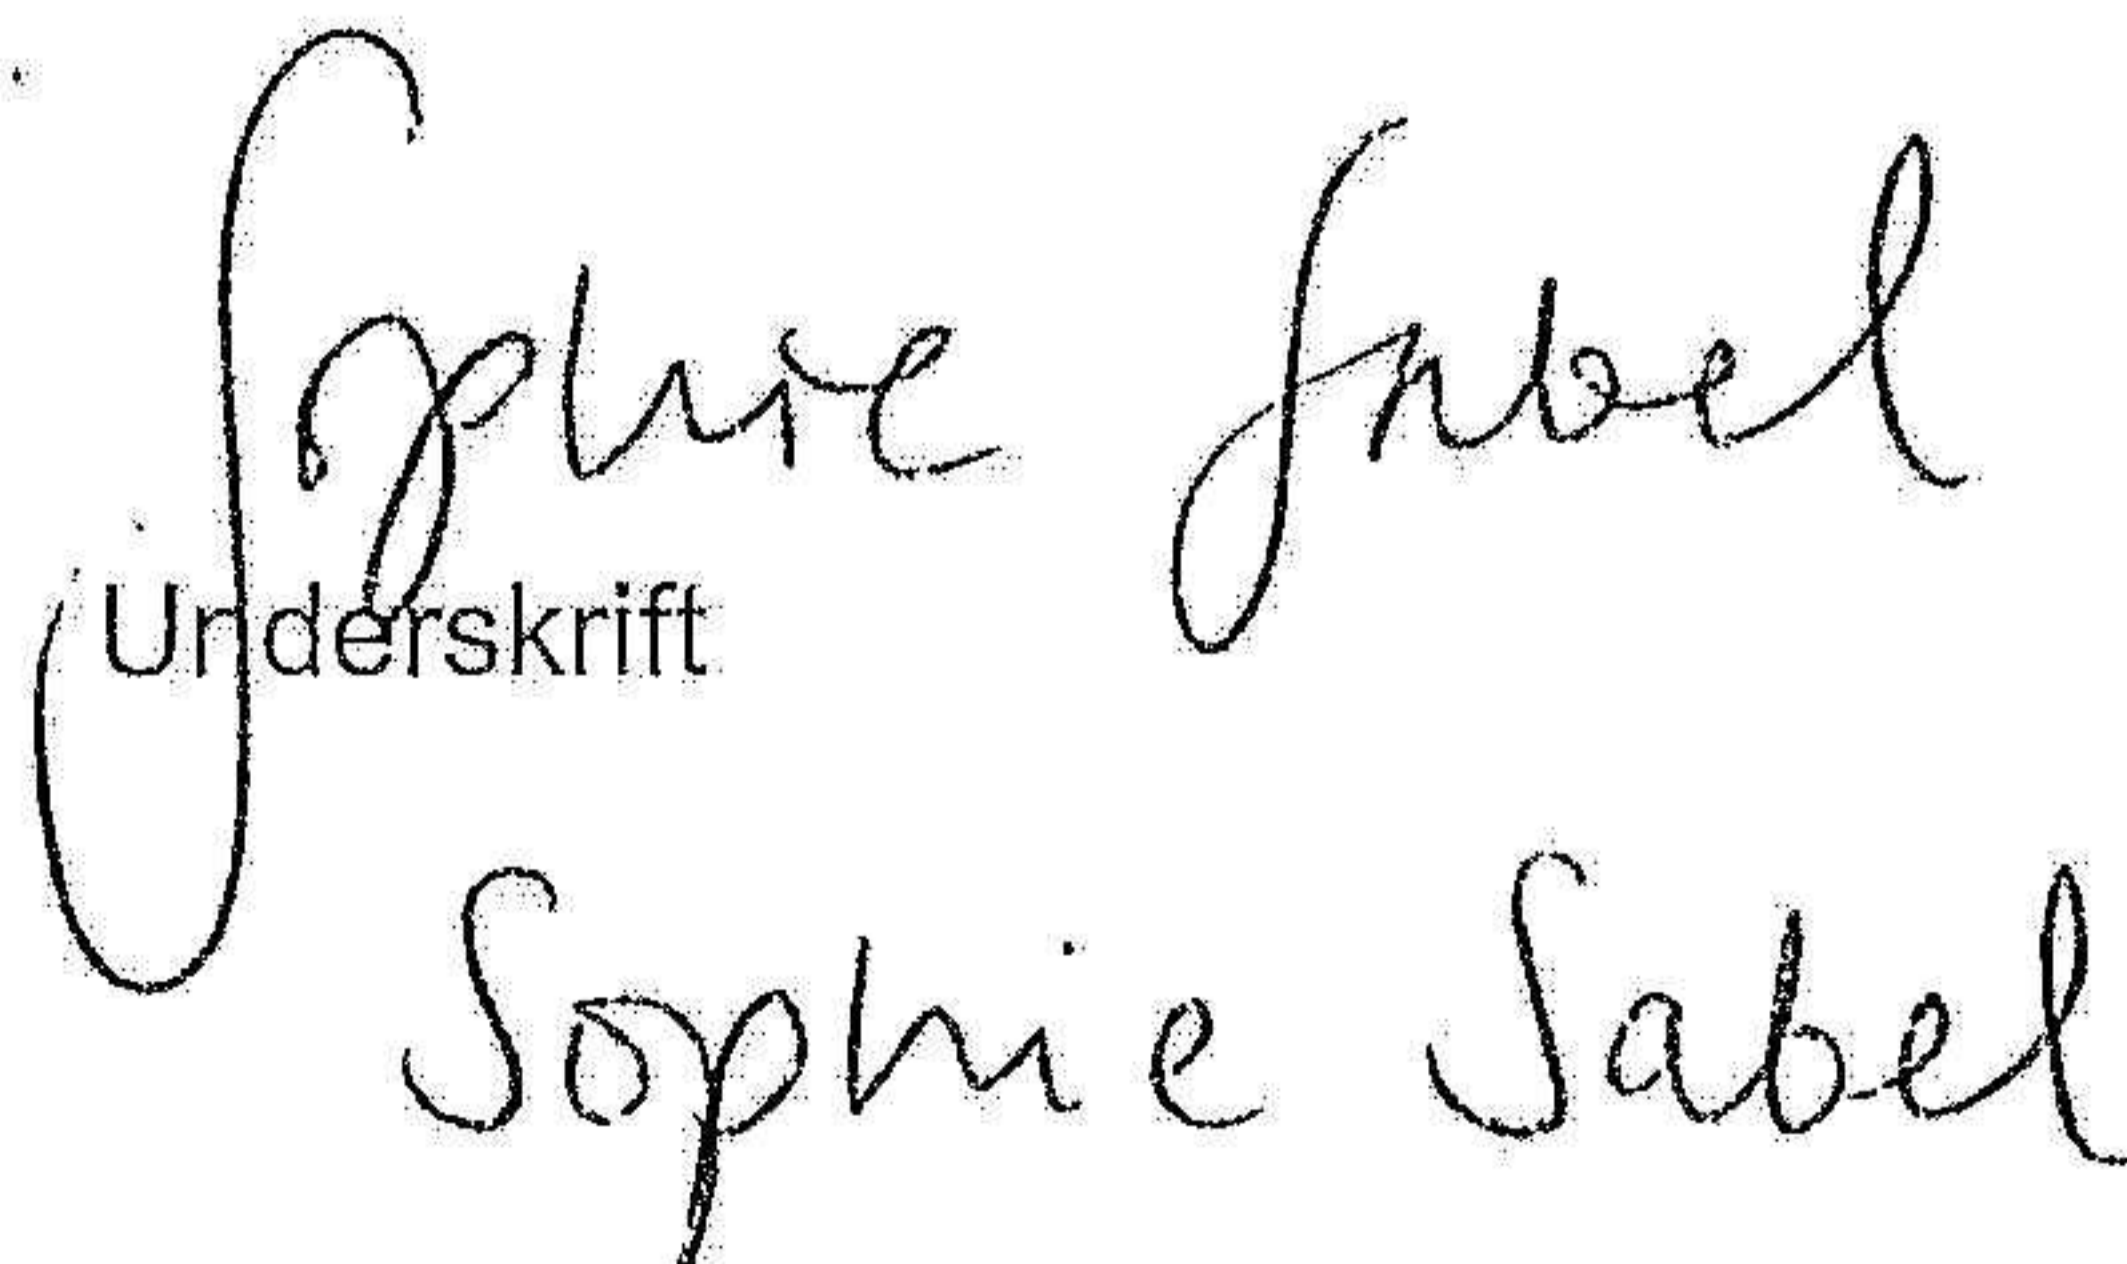 Sophie Sabel
Underskrift
Sophie Sabel